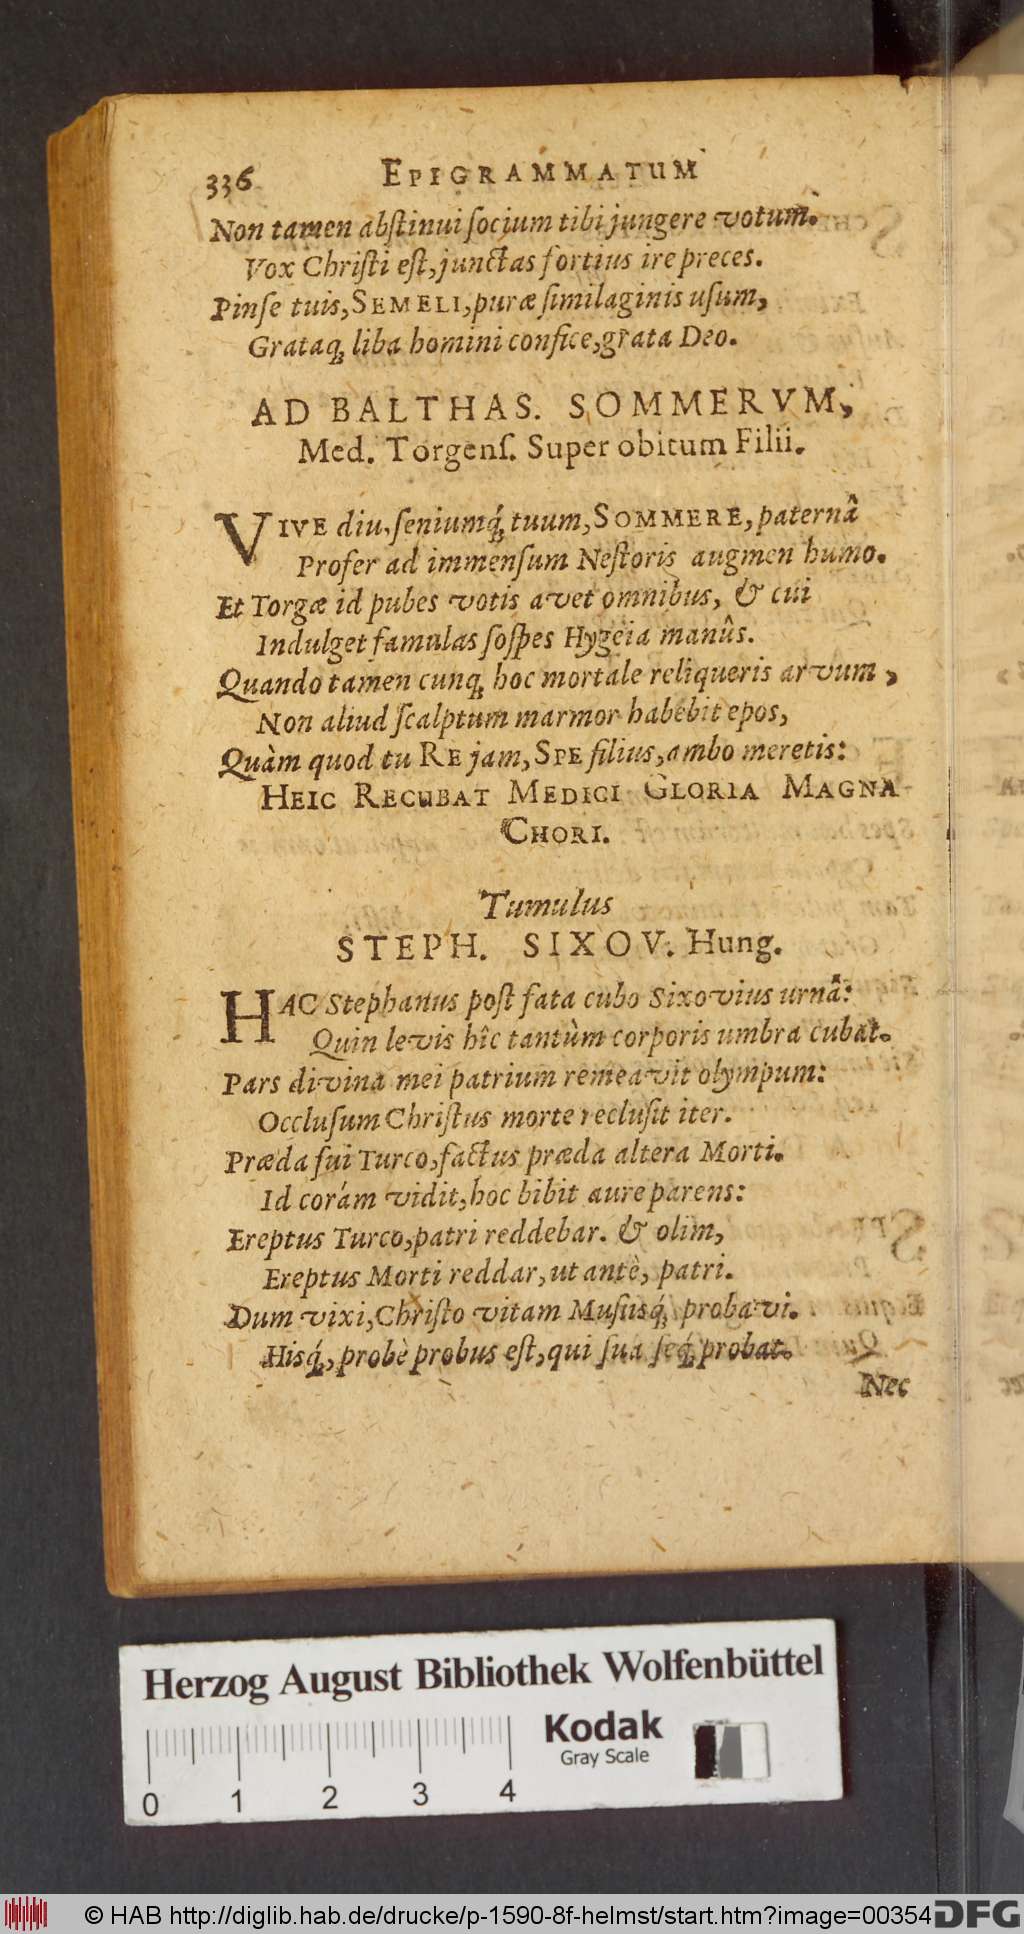 336 EPIGRAMMATUM
Non tamen abſtinui ſocium tibi jungere votum.
Vox Chriſti eſt, junctas fortius ire preces.
Pinſe tuis, SEMELI, puræ ſimilaginis uſum,
Grataq; liba homini confice, grata Deo.
AD BALTHAS. SOMMERVM,
Med. Torgenſ. Super obitum Filii.
VIVE diu, ſeniumq́; tuum, SOMMERE, paternâ
Profer ad immenſum Neſtoris augmen humo.
Et Torgæ id pubes votis avet omnibus, & cui
Indulget famulas ſoſpes Hygeia manûs.
Quando tamen cunq; hoc mortale reliqueris arvum,
Non aliud ſcalptum marmor habebit epos,
Quàm quod tu RE jam, SPE filius, ambo meretis:
HEIC RECUBAT MEDICI GLORIA MAGNA
CHORI.
Tumulus
STEPH. SIXOV. Hung.
HAC Stephanus poſt fata cubo Sixovius urnâ:
Quin levis hîc tantùm corporis umbra cubat.
Pars divina mei patrium remeavit olympum:
Occluſum Chriſtus morte recluſit iter.
Præda fui Turco, factus præda altera Morti.
Id corám vidit, hoc bibit aure parens:
Ereptus Turco, patri reddebar. & olim,
Ereptus Morti reddar, ut antè, patri.
Dum vixi, Chriſto vitam Muſisq́; probavi.
Hisq́;, probè probus eſt, qui ſua ſeq́; probat.
Nec
Herzog August Bibliothek Wolfenbüttel
Kodak
Gray Scale
0 1 2 3 4
© HAB http://diglib.hab.de/drucke/p-1590-8f-helmst/start.htm?image=00354
DFG